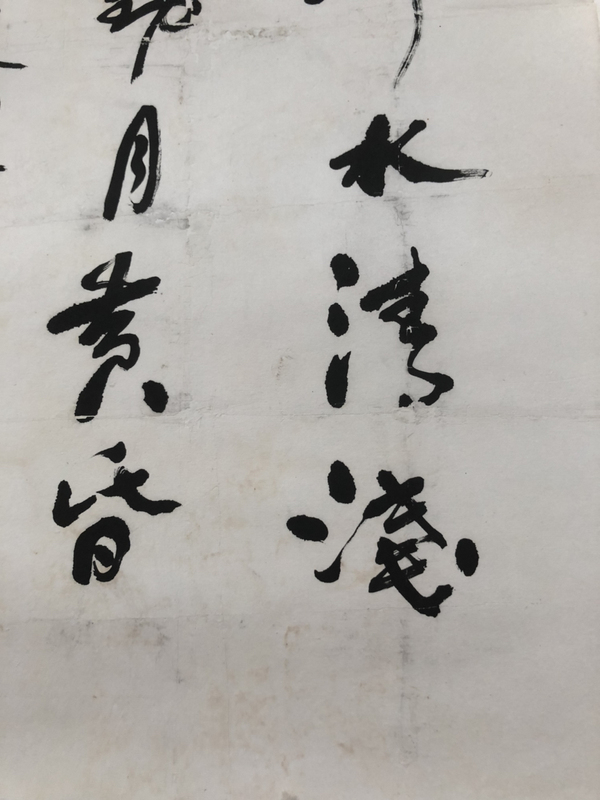 水清淺
月黃昏